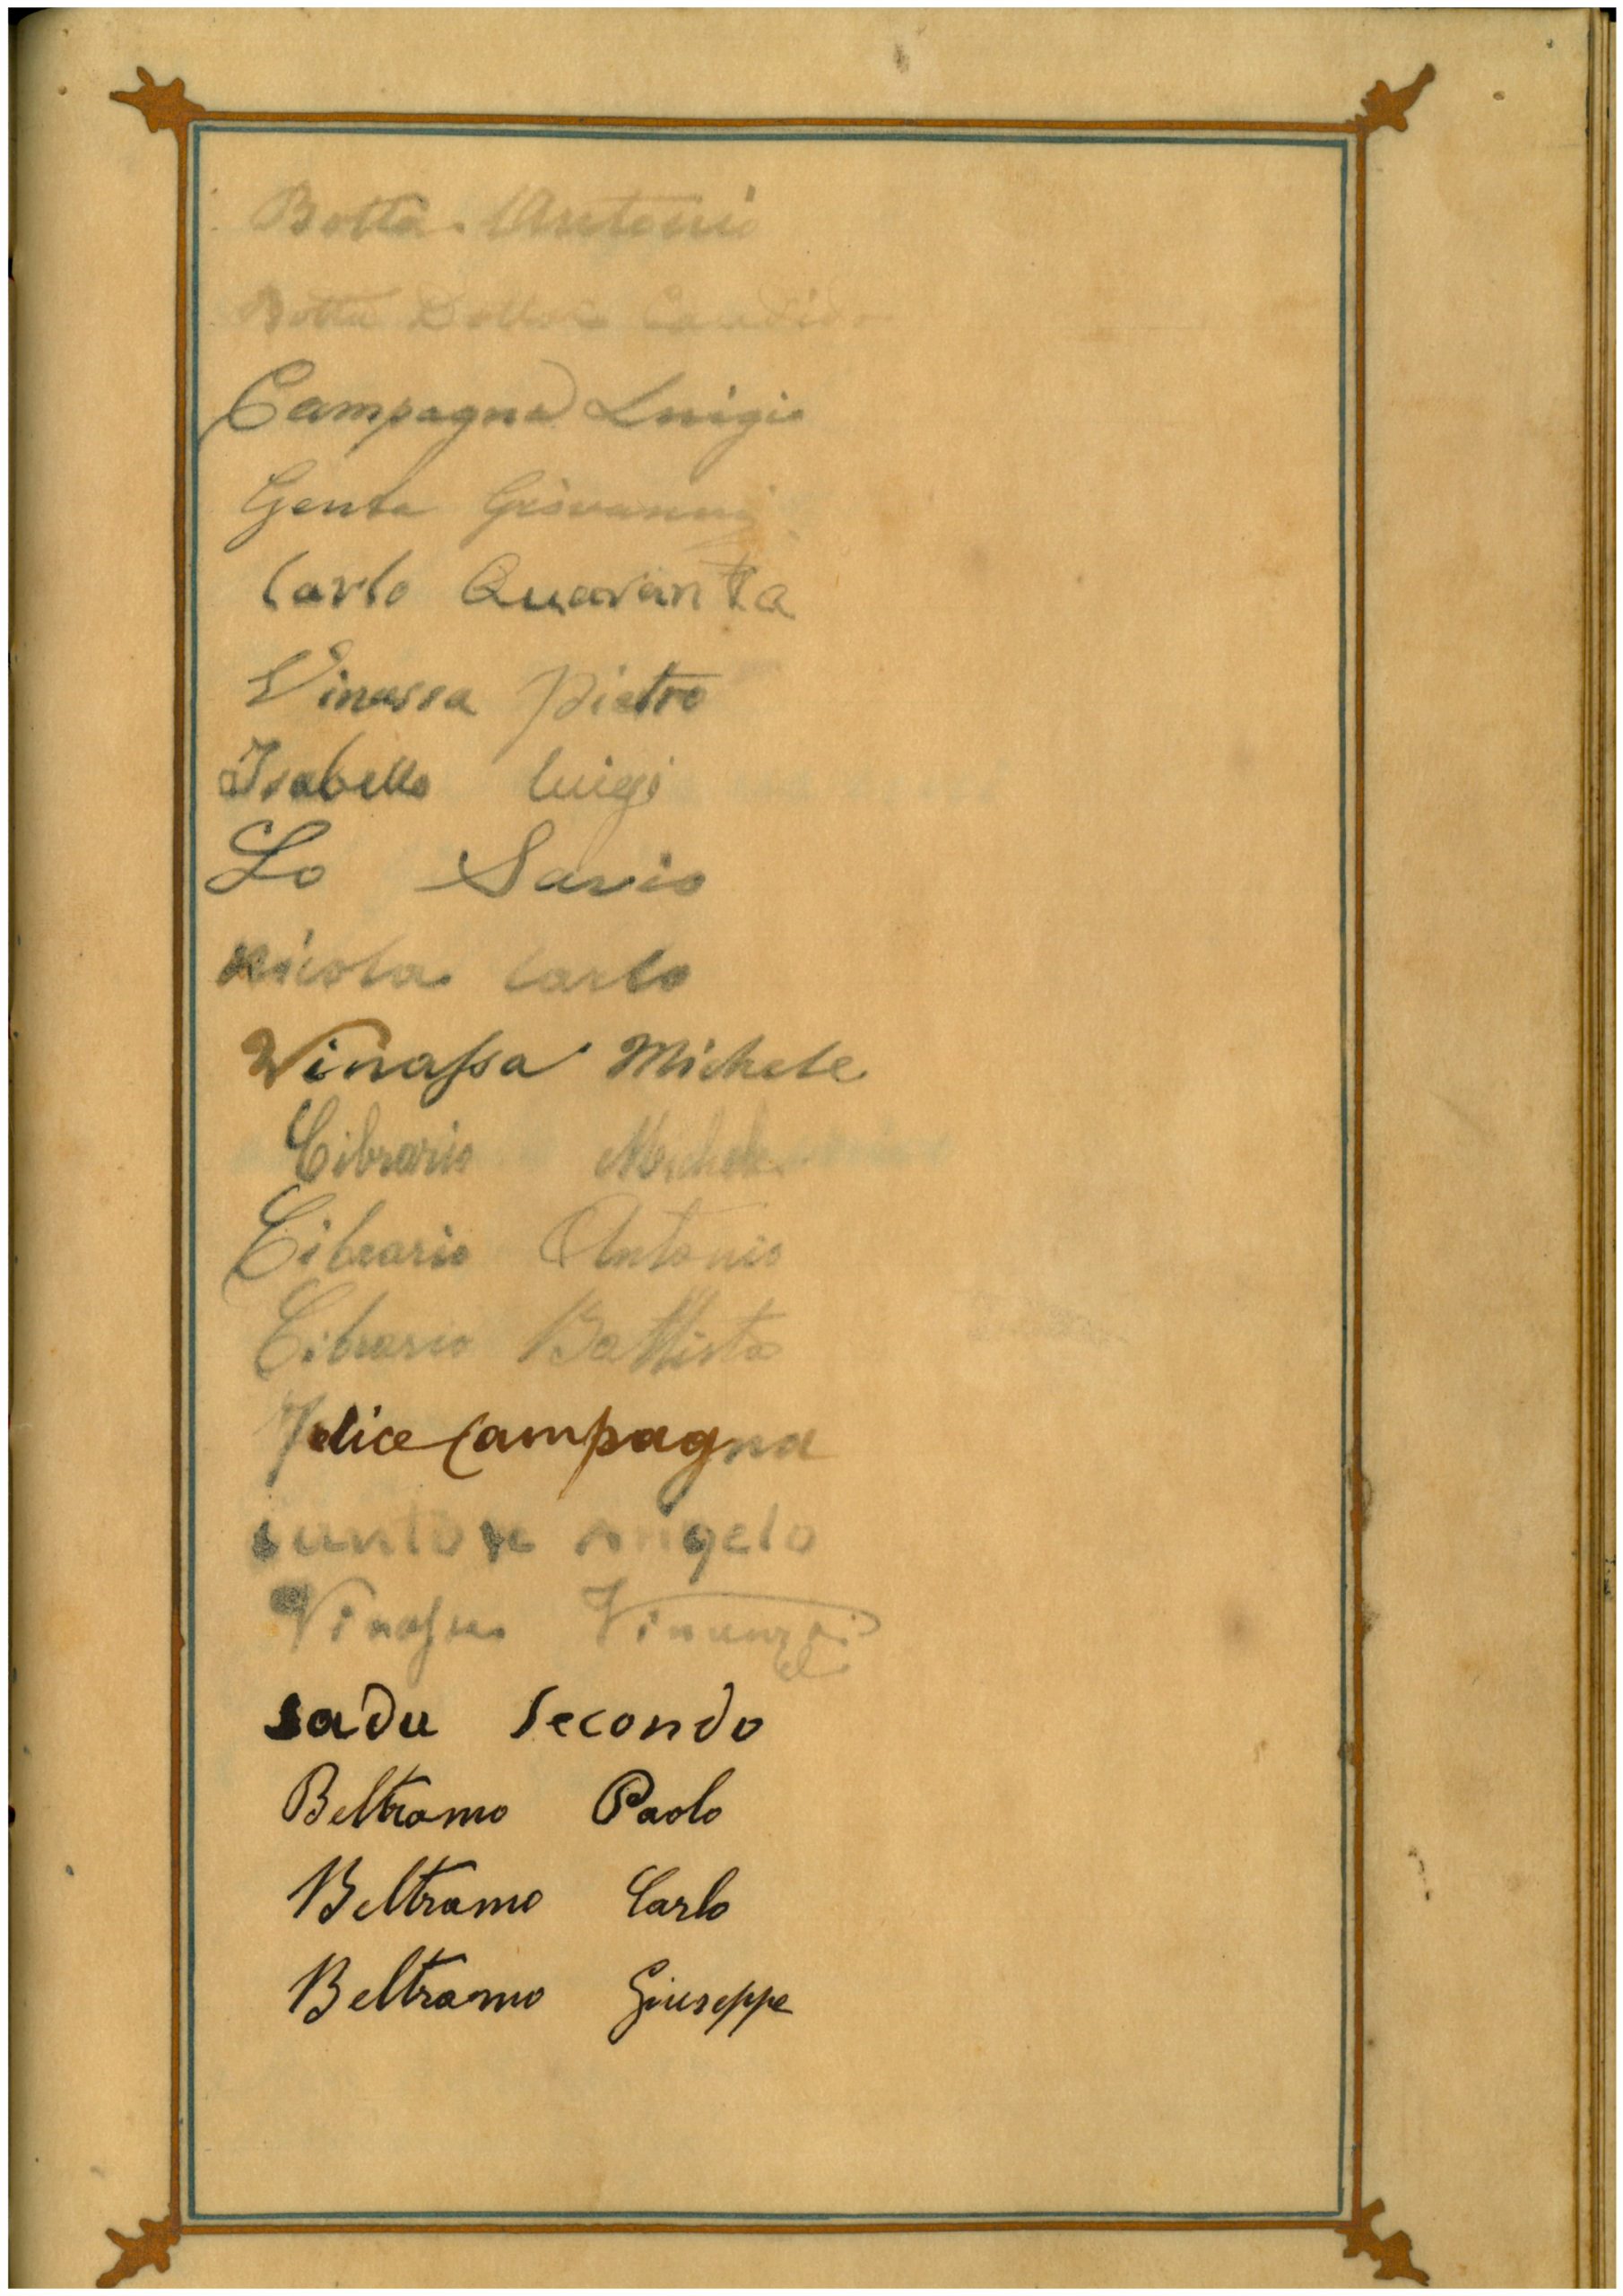 Botta Antonio
Botta Dottore Candido
Campagna Luigi
Genta Giovanni
Carlo Quaranta
Vinassa Pietro
Isabello Luigi
Lo Savio
Nicola Carlo
Vinassa Michele
Cibrario Michele
Cibrario Antonio
Cibrario Battista
Felice Campagna
Angelo
Vinassa
sadu secondo
Beltramo Paolo
Beltramo Carlo
Beltramo Giuseppe